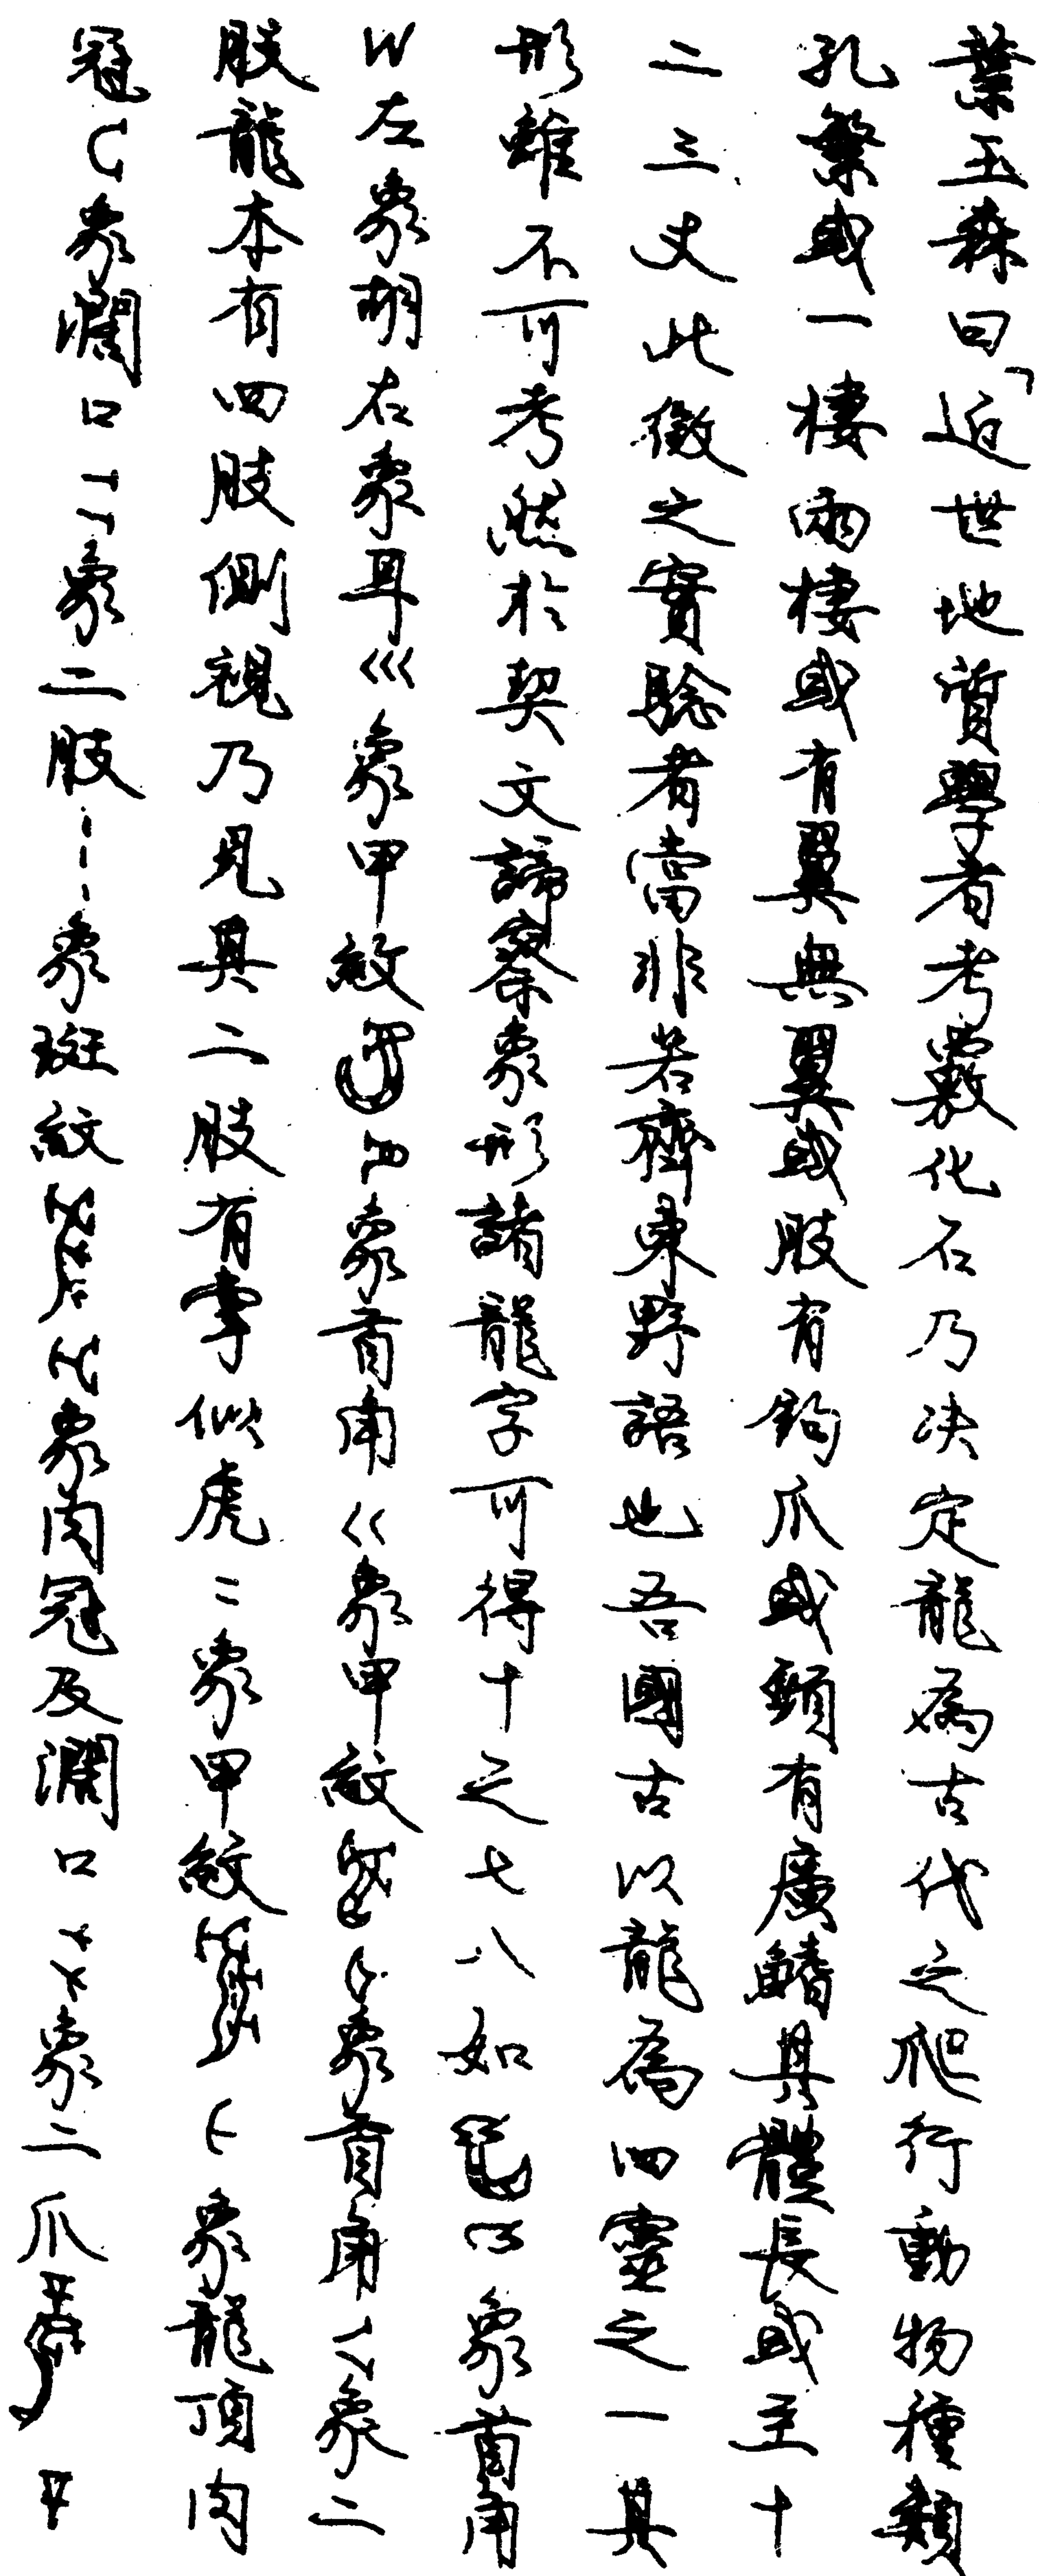 葉玉森曰「近世地質學者考覈化石乃决定龍為古代之爬行動物種類
孔繁或一棲兩棲或有翼無翼或肢有鉤爪或頸有廣鰭其體長或至十
二三丈此徵之實驗者當非若齊東野語也吾國古以龍為四靈之一其
形雖不可考然於契文諦察象形諸龍字可得十之七八如象首角
左象胡右象耳巛象甲紋象首角巜象甲紋象首角象二
肢龍本有四肢側視乃見其二肢有掌似虎象甲紋象龍頂肉
冠象濶口象二肢象斑紋象肉冠及濶口象二爪